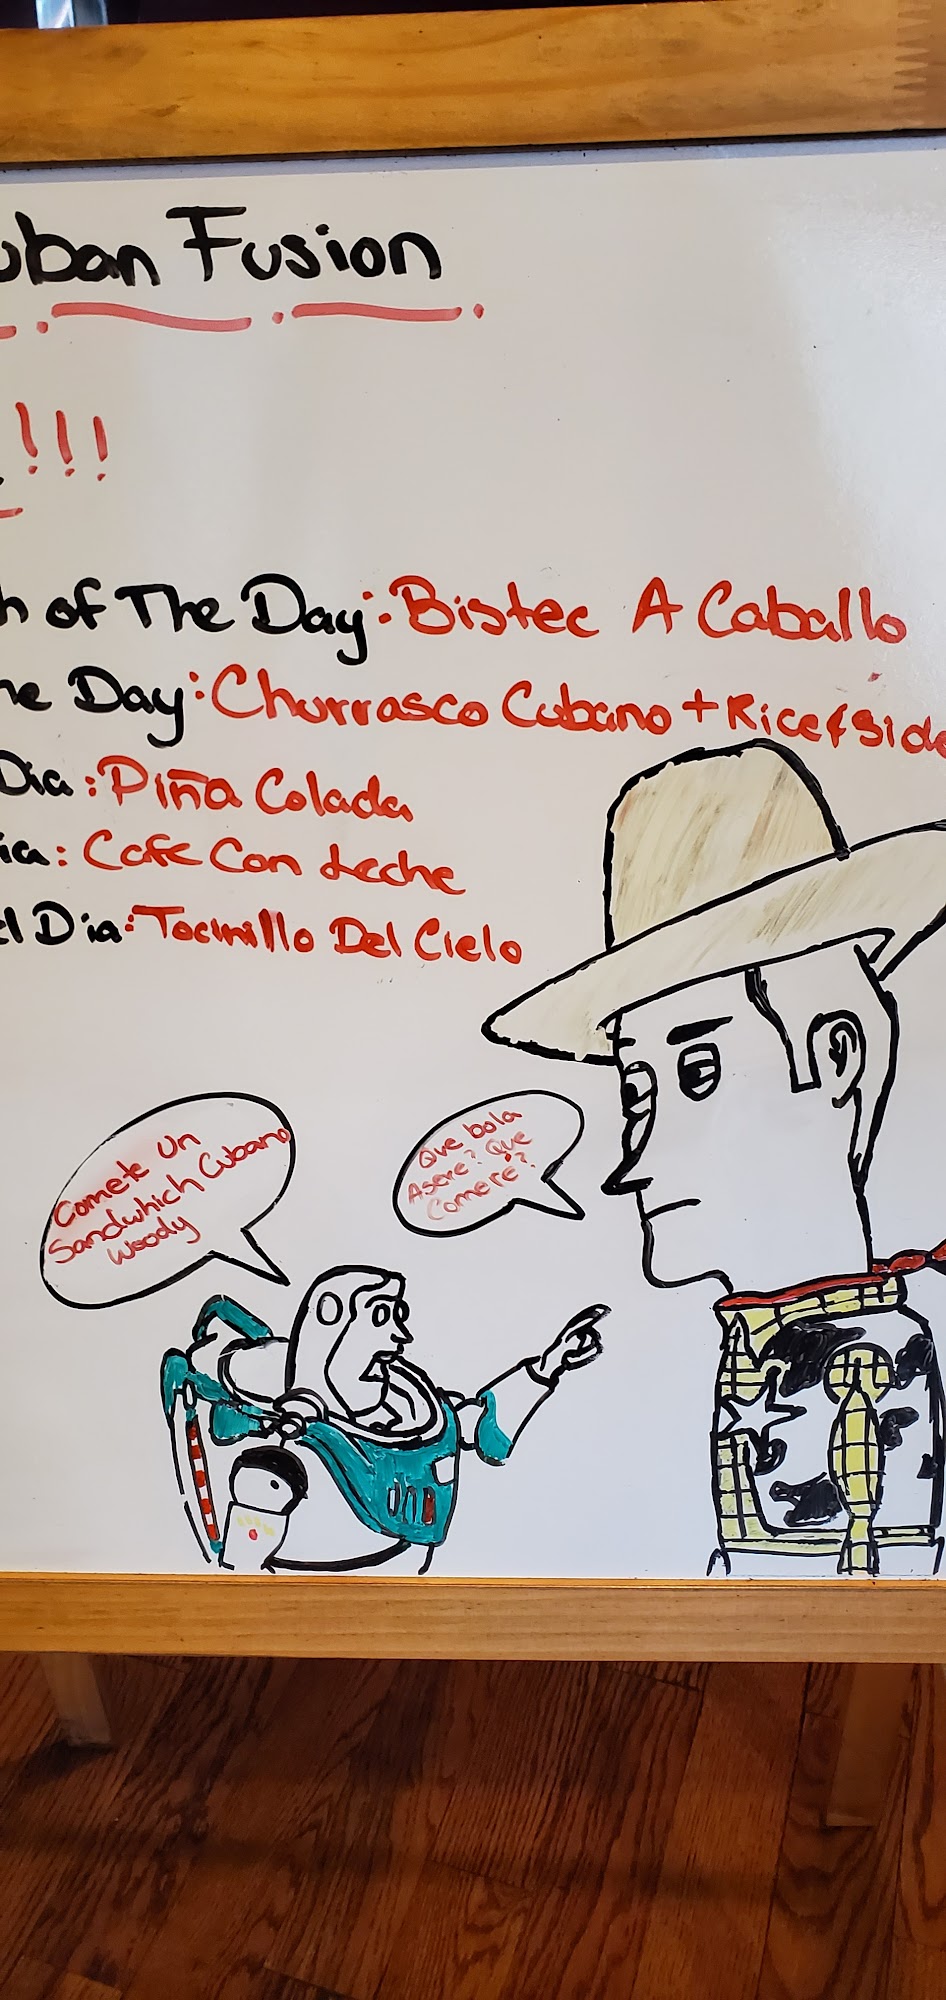 uban Fusion
!!!
h of The Day: Bistec A Caballo
he Day: Churrasco Cubano + Rice & Side
Dia: Piña Colada
ia: Cafe Con Leche
el Dia: Tocinillo Del Cielo
Comete Un
Sandwhich Cubano
Woody
Que bola
Asere? Que
Comere?